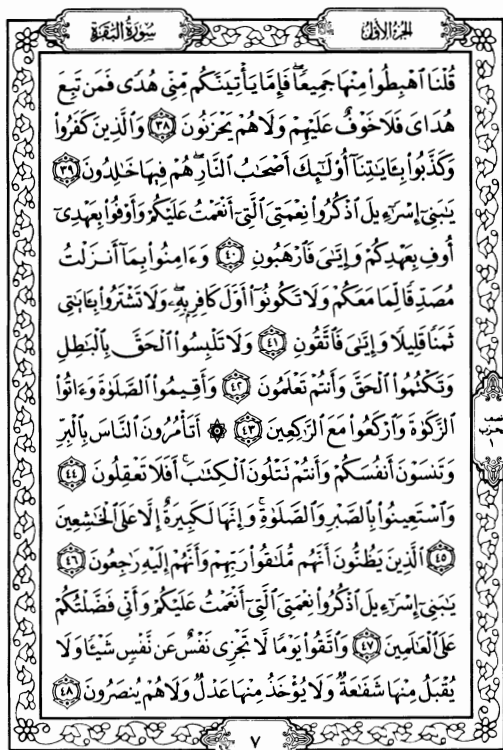 سورة البقرة
الجزء الأول
قُلْنَا ٱهْبِطُوا۟ مِنْهَا جَمِيعًا ۖ فَإِمَّا يَأْتِيَنَّكُم مِّنِّى هُدًى فَمَن تَبِعَ
هُدَاىَ فَلَا خَوْفٌ عَلَيْهِمْ وَلَا هُمْ يَحْزَنُونَ ٣٨ وَٱلَّذِينَ كَفَرُوا۟
وَكَذَّبُوا۟ بِـَٔايَـٰتِنَآ أُو۟لَـٰٓئِكَ أَصْحَـٰبُ ٱلنَّارِ ۖ هُمْ فِيهَا خَـٰلِدُونَ ٣٩
يَـٰبَنِىٓ إِسْرَٰٓءِيلَ ٱذْكُرُوا۟ نِعْمَتِىَ ٱلَّتِىٓ أَنْعَمْتُ عَلَيْكُمْ وَأَوْفُوا۟ بِعَهْدِىٓ
أُوفِ بِعَهْدِكُمْ وَإِيَّـٰىَ فَٱرْهَبُونِ ٤٠ وَءَامِنُوا۟ بِمَآ أَنزَلْتُ
مُصَدِّقًا لِّمَا مَعَكُمْ وَلَا تَكُونُوٓا۟ أَوَّلَ كَافِرٍۭ بِهِۦ ۖ وَلَا تَشْتَرُوا۟ بِـَٔايَـٰتِى
ثَمَنًا قَلِيلًا وَإِيَّـٰىَ فَٱتَّقُونِ ٤١ وَلَا تَلْبِسُوا۟ ٱلْحَقَّ بِٱلْبَـٰطِلِ
وَتَكْتُمُوا۟ ٱلْحَقَّ وَأَنتُمْ تَعْلَمُونَ ٤٢ وَأَقِيمُوا۟ ٱلصَّلَوٰةَ وَءَاتُوا۟
ٱلزَّكَوٰةَ وَٱرْكَعُوا۟ مَعَ ٱلرَّٰكِعِينَ ٤٣ ۞ أَتَأْمُرُونَ ٱلنَّاسَ بِٱلْبِرِّ
وَتَنسَوْنَ أَنفُسَكُمْ وَأَنتُمْ تَتْلُونَ ٱلْكِتَـٰبَ ۚ أَفَلَا تَعْقِلُونَ ٤٤
وَٱسْتَعِينُوا۟ بِٱلصَّبْرِ وَٱلصَّلَوٰةِ ۚ وَإِنَّهَا لَكَبِيرَةٌ إِلَّا عَلَى ٱلْخَـٰشِعِينَ
٤٥ ٱلَّذِينَ يَظُنُّونَ أَنَّهُم مُّلَـٰقُوا۟ رَبِّهِمْ وَأَنَّهُمْ إِلَيْهِ رَٰجِعُونَ ٤٦
يَـٰبَنِىٓ إِسْرَٰٓءِيلَ ٱذْكُرُوا۟ نِعْمَتِىَ ٱلَّتِىٓ أَنْعَمْتُ عَلَيْكُمْ وَأَنِّى فَضَّلْتُكُمْ
عَلَى ٱلْعَـٰلَمِينَ ٤٧ وَٱتَّقُوا۟ يَوْمًا لَّا تَجْزِى نَفْسٌ عَن نَّفْسٍ شَيْـًٔا وَلَا
يُقْبَلُ مِنْهَا شَفَـٰعَةٌ وَلَا يُؤْخَذُ مِنْهَا عَدْلٌ وَلَا هُمْ يُنصَرُونَ ٤٨
٧